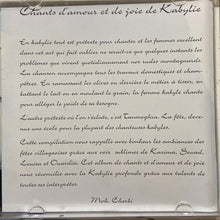 Chants d'amour et de joie de Kabylie
En kabylie tout est prétexte pour chanter et les femmes excellent
dans cet art qui fait oublier ne serait-ce que quelques instants les
problèmes que vivent quotidiennement nos rudes montagnards.
La chanson accompagne tous les travaux domestiques et cham-
pêtres. En ramassant les olives ou derrière le métier à tisser, en
battant le lait ou en mouant le grain, la femme kabyle chante
pour alléger le poids de sa besogne.
L'autre prétexte est l'a r'elete, c'est Tazmeghra. La fête, deve-
nue une école pour la plupart des chanteuses kabyles.
Cette compilation nous rappelle avec bonheur les ambiances des
fêtes villageoises grâce aux voix sublimes de Karima, Souad,
Louiza et Ouardia. Cet album de chants d'amour et de joie
nous réconcilie avec la Kabylie profonde grâce aux talents de
toutes ses interprètes.
Moh Cherbi